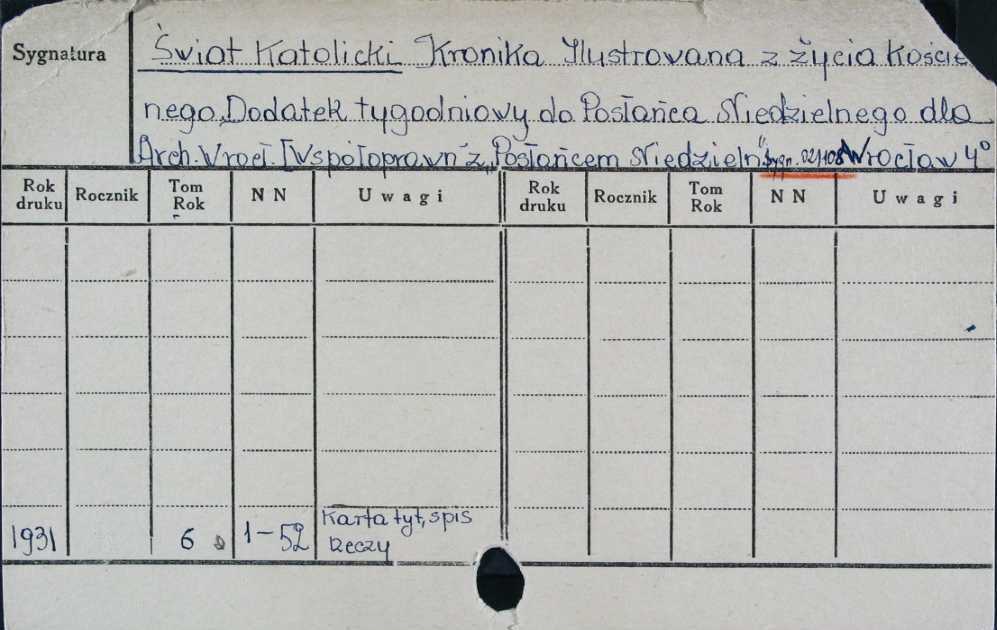 Sygnatura
Świat Katolicki Kronika Ilustrowana z życia Koście
nego. Dodatek tygodniowy do Posłańca Niedzielnego dla
Arch. Wrocł. [Współoprawn. z „Posłańcem Niedzieln" Sygn. 02/108 Wrocław 4°
Rok druku Rocznik Tom Rok N N Uwagi Rok druku Rocznik Tom Rok N N Uwagi
1931 6 1-52 Karta tyt, spis
rzeczy